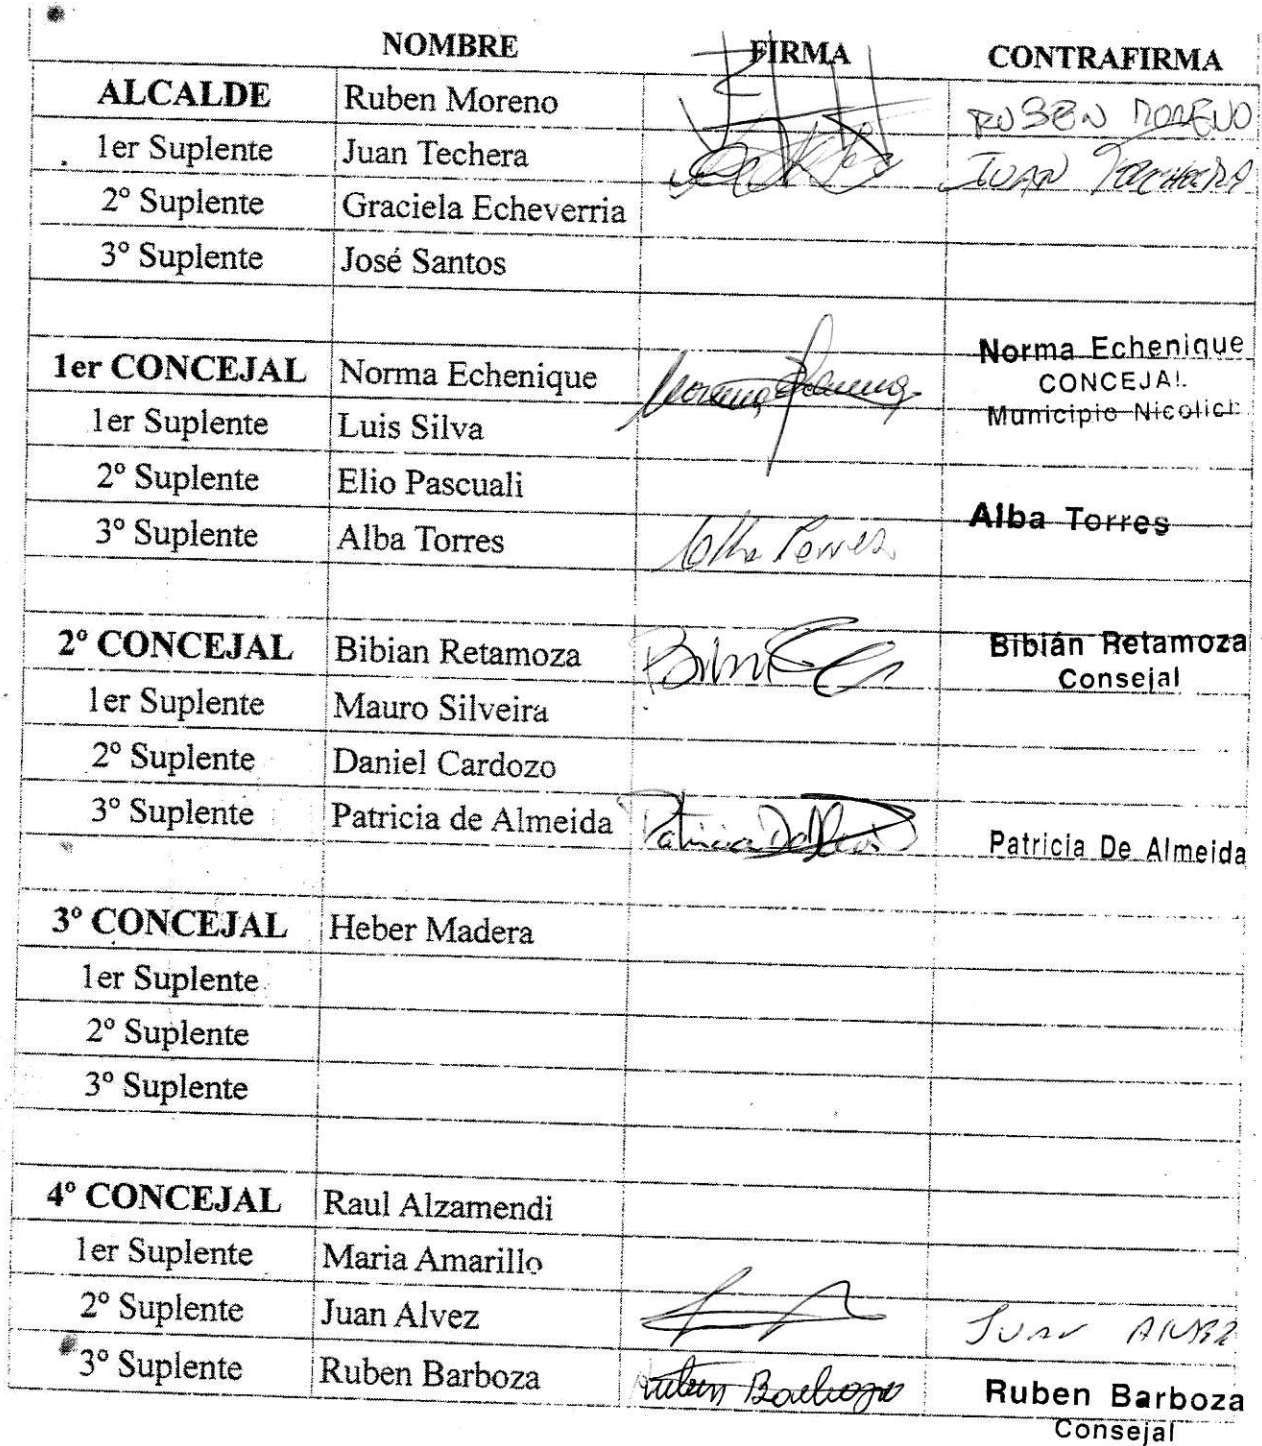 NOMBRE FIRMA CONTRAFIRMA
ALCALDE Ruben Moreno RUBEN MORENO
1er Suplente Juan Techera JUAN TECHERA
2º Suplente Graciela Echeverria
3º Suplente José Santos
Norma Echenique
1er CONCEJAL Norma Echenique CONCEJAL
1er Suplente Luis Silva Municipio Nicolich
2º Suplente Elio Pascuali
3º Suplente Alba Torres Alba Torres Alba Torres
2º CONCEJAL Bibian Retamoza Bibián Retamoza
Consejal
1er Suplente Mauro Silveira
2º Suplente Daniel Cardozo
3º Suplente Patricia de Almeida Patricia De Almeida Patricia De Almeida
3º CONCEJAL Heber Madera
1er Suplente
2º Suplente
3º Suplente
4º CONCEJAL Raul Alzamendi
1er Suplente Maria Amarillo
2º Suplente Juan Alvez JUAN ALVEZ
3º Suplente Ruben Barboza Ruben Barboza Ruben Barboza
Consejal